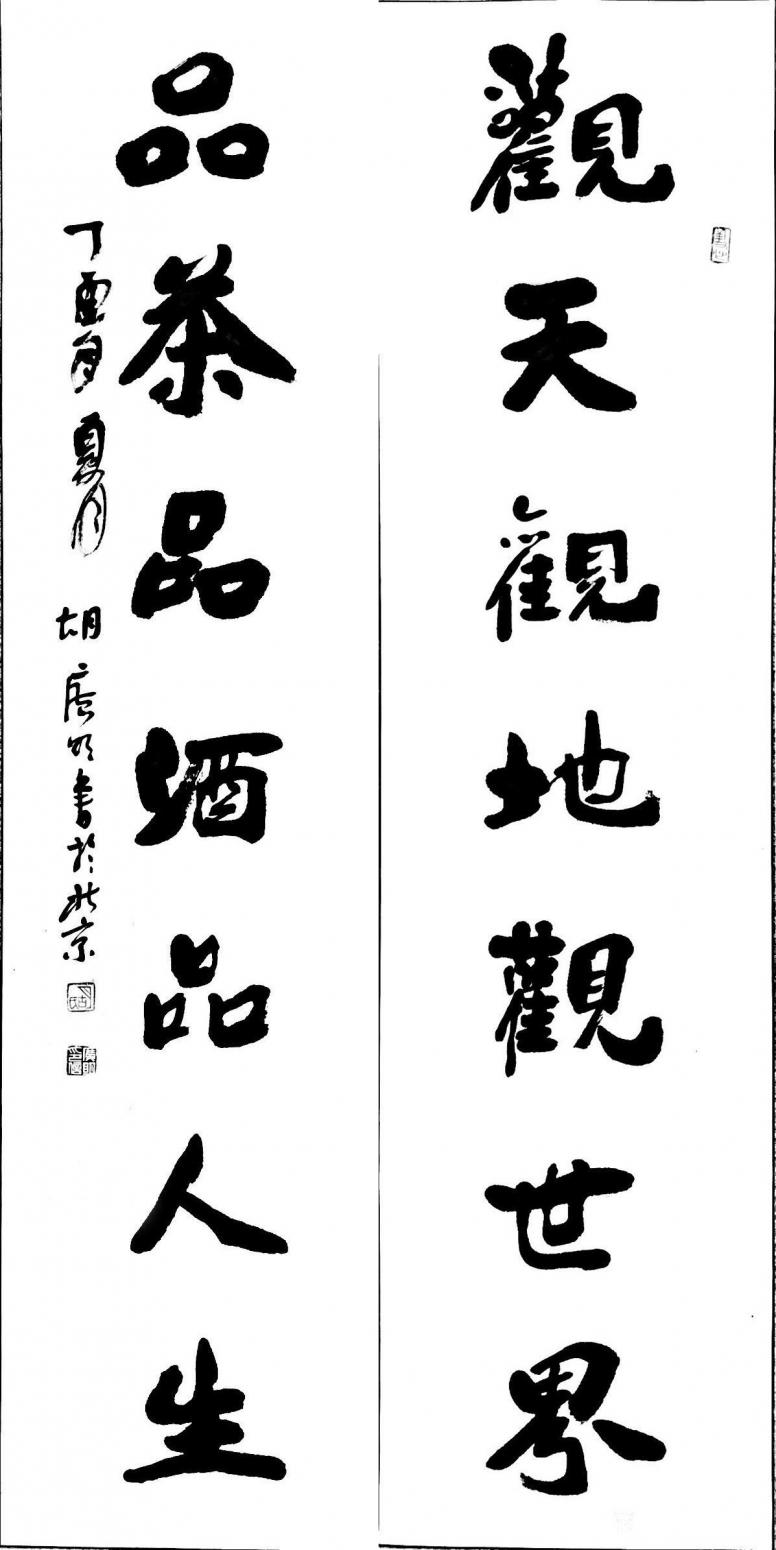 觀天觀地觀世界
品茶品酒品人生
丁酉年夏月 胡广明書於北京